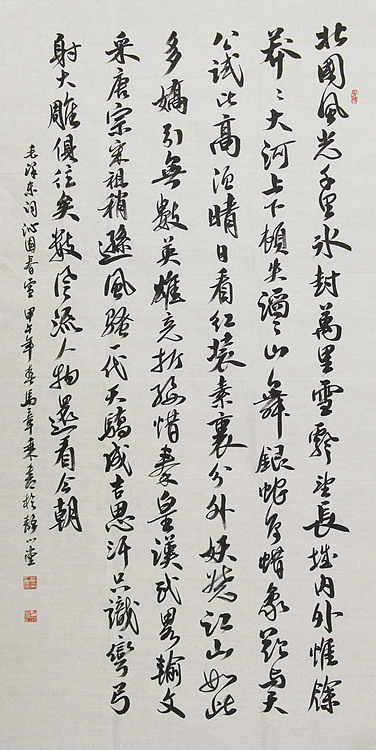 北國風光千里冰封萬里雪飄望長城內外惟餘
莽々大河上下頓失滔々山舞銀蛇原馳蠟象欲與天
公試比高須晴日看紅裝素裹分外妖嬈江山如此
多嬌引無數英雄競折腰惜秦皇漢武略輸文
采唐宗宋祖稍遜風騷一代天驕成吉思汗只識彎弓
射大雕俱往矣數風流人物還看今朝
毛澤東詞沁園春雪甲午年春馬章乘書於靜心堂